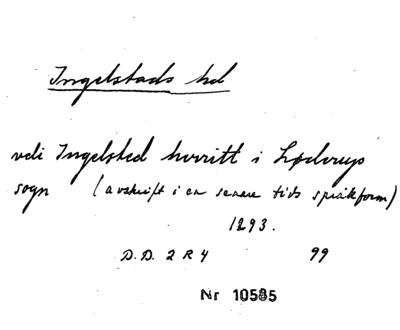 Ingelstads hd
vdi Ingelsted herritt i Löderup
sogn (avskrift i en senare tids språkform)
1293.
D.D. 2 R 4 99
Nr 10585